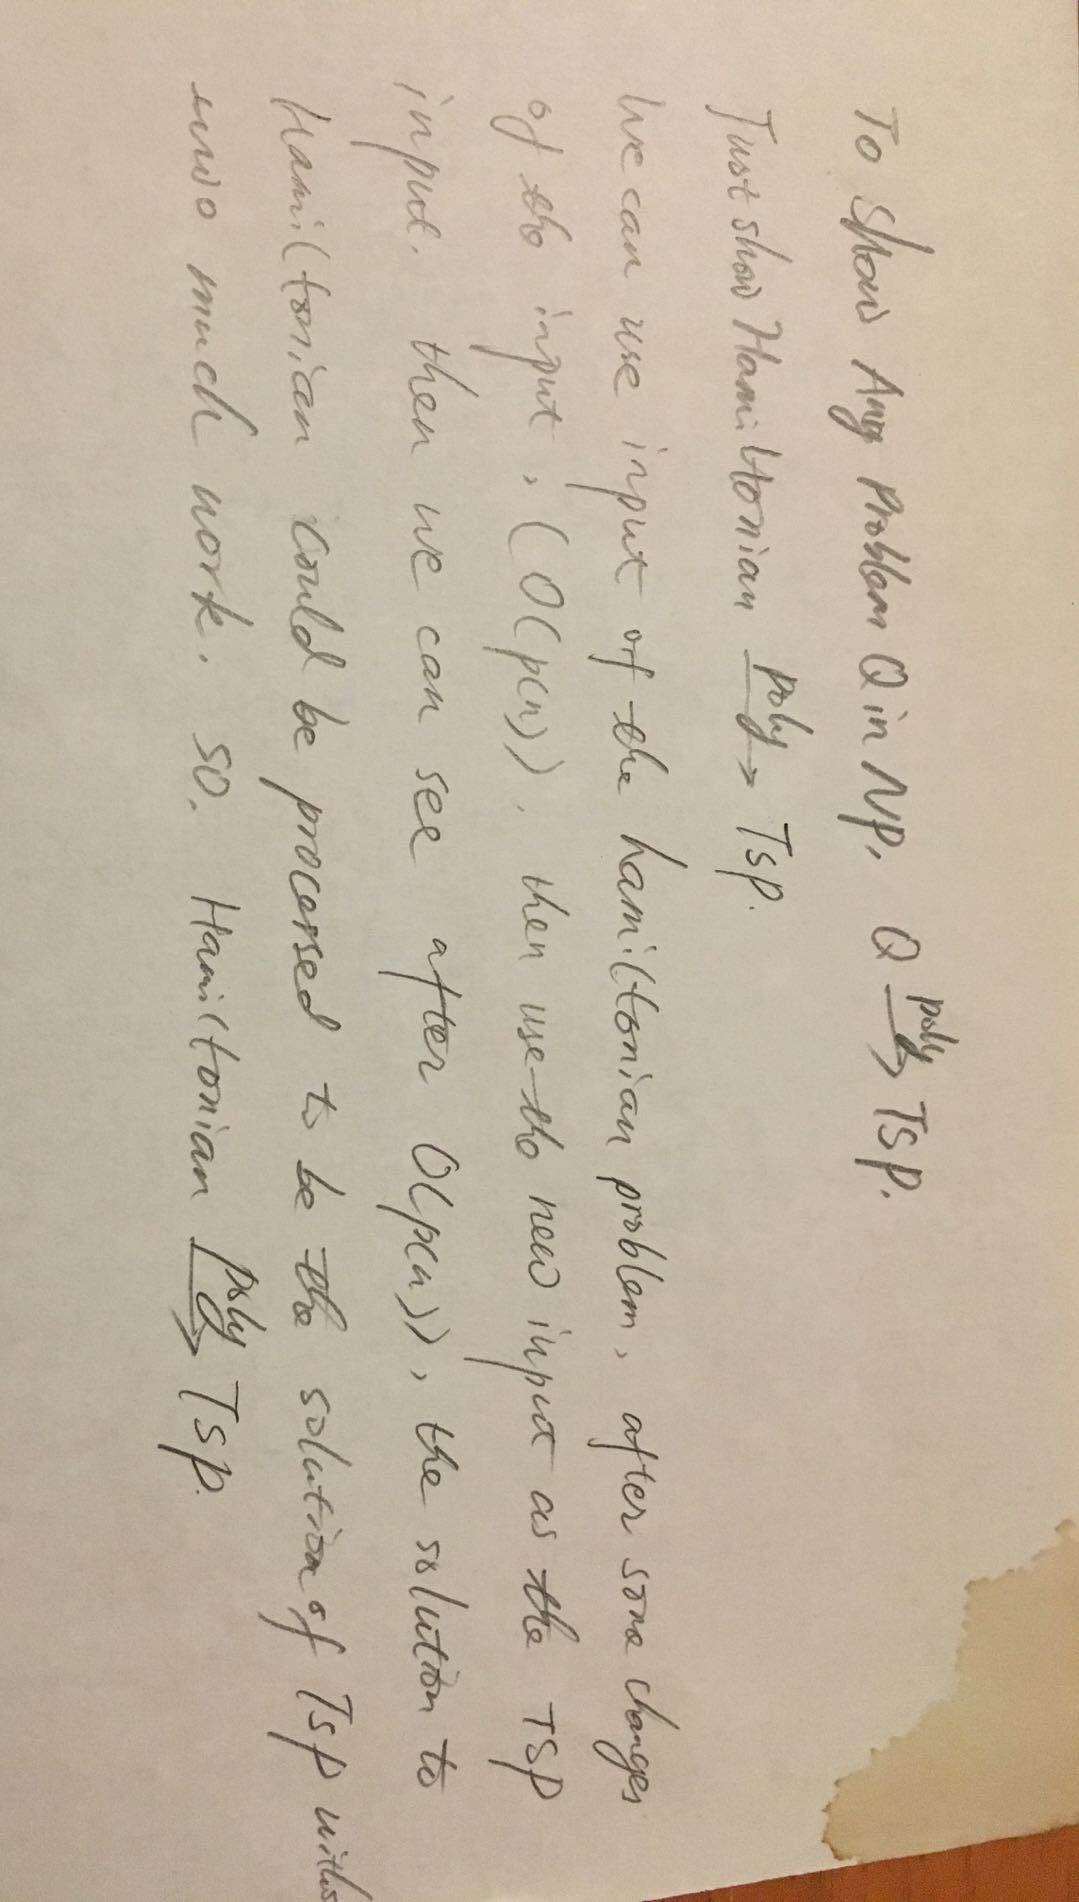 To Show Any Problem Q in NP, Q poly→ TSP.
Just show Hamiltonian poly→ TSP.
We can use input of the hamiltonian problem, after some changes
of the input, (O(p(n))), then use the new input as the TSP
input. then we can see after O(p(n)), the solution to
Hamiltonian could be processed to be the solution of TSP
much work. so. Hamiltonian poly→ TSP.